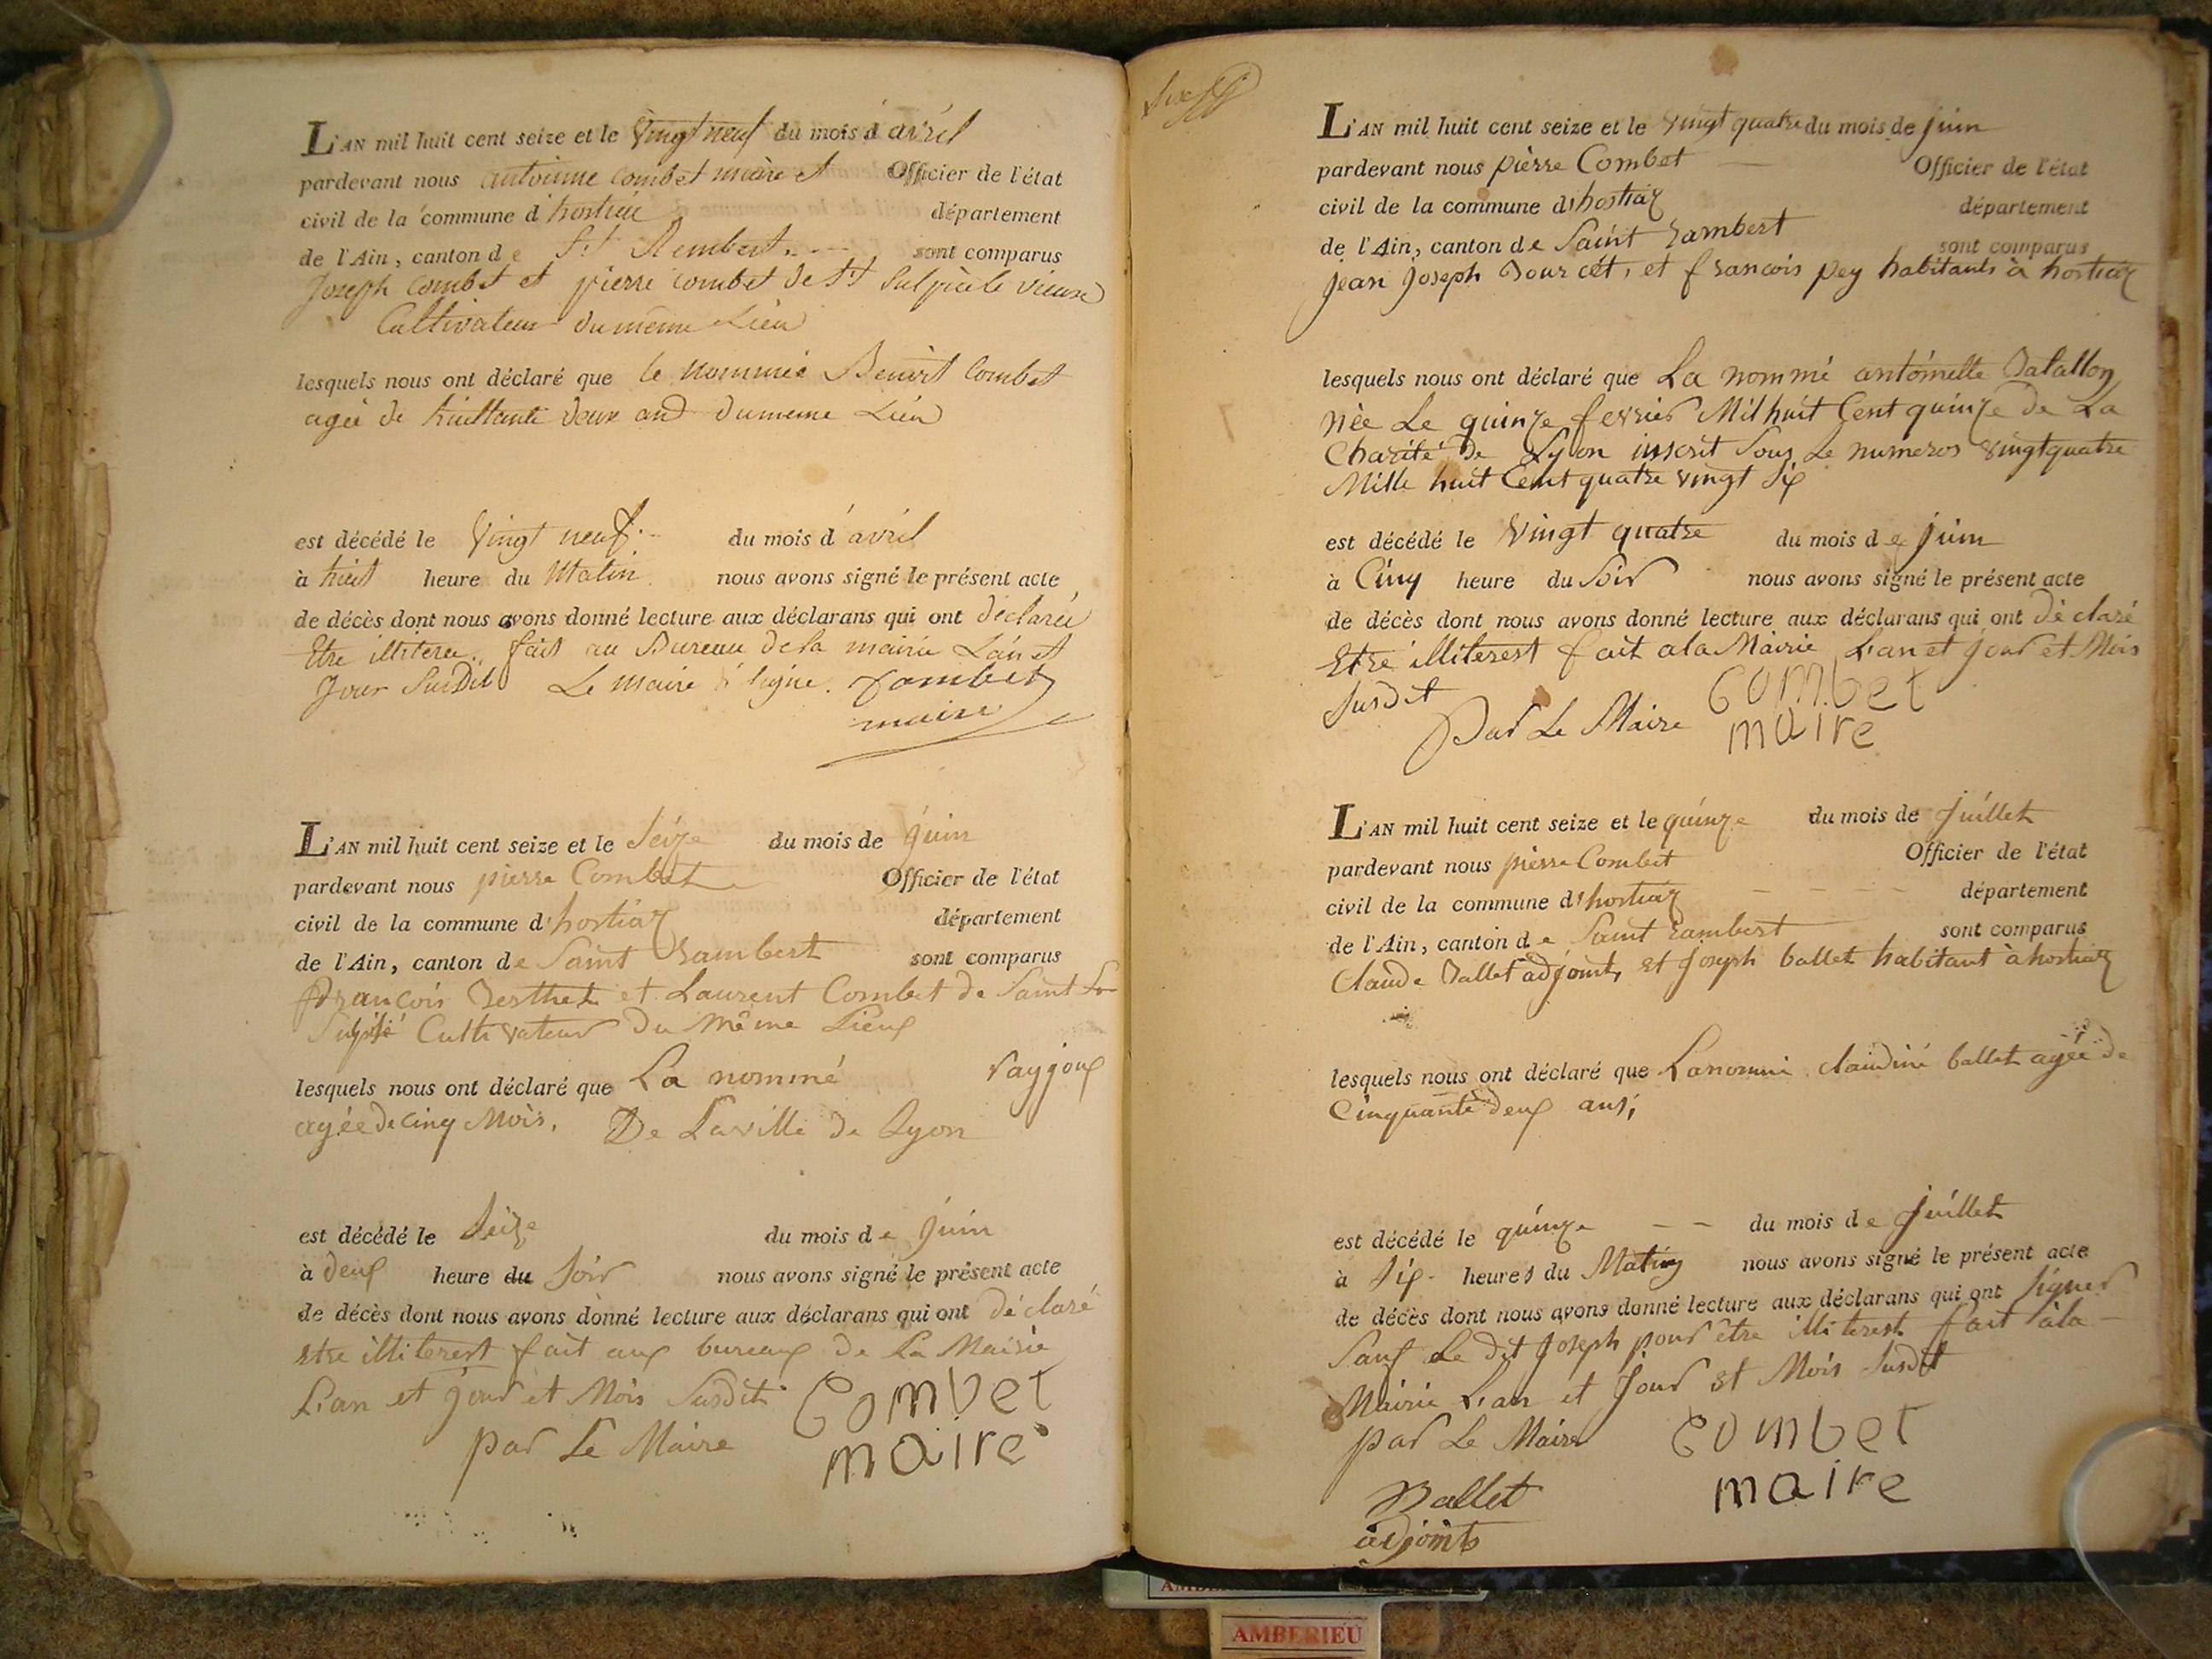 L'AN mil huit cent seize et le vingt neuf du mois d'avril
pardevant nous antoinne Combet maire et Officier de l'état
civil de la commune d'hostiaz département
de l'Ain, canton de St Rembert. sont comparus
Joseph Combet et pierre Combet de St Sulpice le vieux
Cultivateur du même Lieu
lesquels nous ont déclaré que le nommée Benoit Combet
agée de huittante deux and du meme Lieu
est décédé le vingt neuf du mois d'avril
à huit heure du Matin nous avons signé le présent acte
de décès dont nous avons donné lecture aux déclarans qui ont déclarée
Etre illiteree. fait au Bureau de la mairie L'an et
Jour Susdit Le maire signé. Combet
maire
L'AN mil huit cent seize et le Seize du mois de juin
pardevant nous pierre Combet Officier de l'état
civil de la commune d'hostiaz département
de l'Ain, canton de Saint rambert sont comparus
françois Berthet et Laurent Combet de Saint
Sulpisé Cultivateur du Même Lieux
lesquels nous ont déclaré que La nommé rayjoux
agée de cinq Mois, De La ville de Lyon
est décédé le Seize du mois de juin
à deux heure du Soir nous avons signé le présent acte
de décès dont nous avons donné lecture aux déclarans qui ont déclaré
etre illiterest fait aux bureaux de La Mairie
L'an et jour et Mois Susdit Combet
par Le Maire maire
six
L'AN mil huit cent seize et le vingt quatre du mois de juin
pardevant nous pièrre Combet Officier de l'état
civil de la commune d'hostiaz département
de l'Ain, canton de Saint rambert sont comparus
jean joseph bourcét, et francois pey habitants à hostiaz
lesquels nous ont déclaré que La nommé antóinette Batallon
née Le quinze fevrier Mil huit Cent quinze de La
Charité de Lyon inscrit Sous Le numeros vingt quatre
Mille huit Cent quatre vingt Six
est décédé le vingt quatre du mois de juin
à Cinq heure du Soir nous avons signé le présent acte
de décès dont nous avons donné lecture aux déclarans qui ont déclaré
Etre illiterest fait a la Mairie L'an et jour et Mois
Susdit combet
Par Le Maire maire
L'AN mil huit cent seize et le quinze du mois de juillet
pardevant nous pierre Combet Officier de l'état
civil de la commune d'hostiaz département
de l'Ain, canton de Saint rambert sont comparus
Claude Ballet adjoint, et joseph ballet habitant à hostiaz
lesquels nous ont déclaré que La nommé claudine ballet agée de
Cinquante deux ans,
est décédé le quinze du mois de juillet
à Six heures du Matin nous avons signé le présent acte
de décès dont nous avons donné lecture aux déclarans qui ont signer
Sauf Le dit joseph pour être illiterest fait à la
Mairie L'an et jour et Mois Susdit
par Le Maire combet
maire
Ballet
adjoints
AMBERIEU